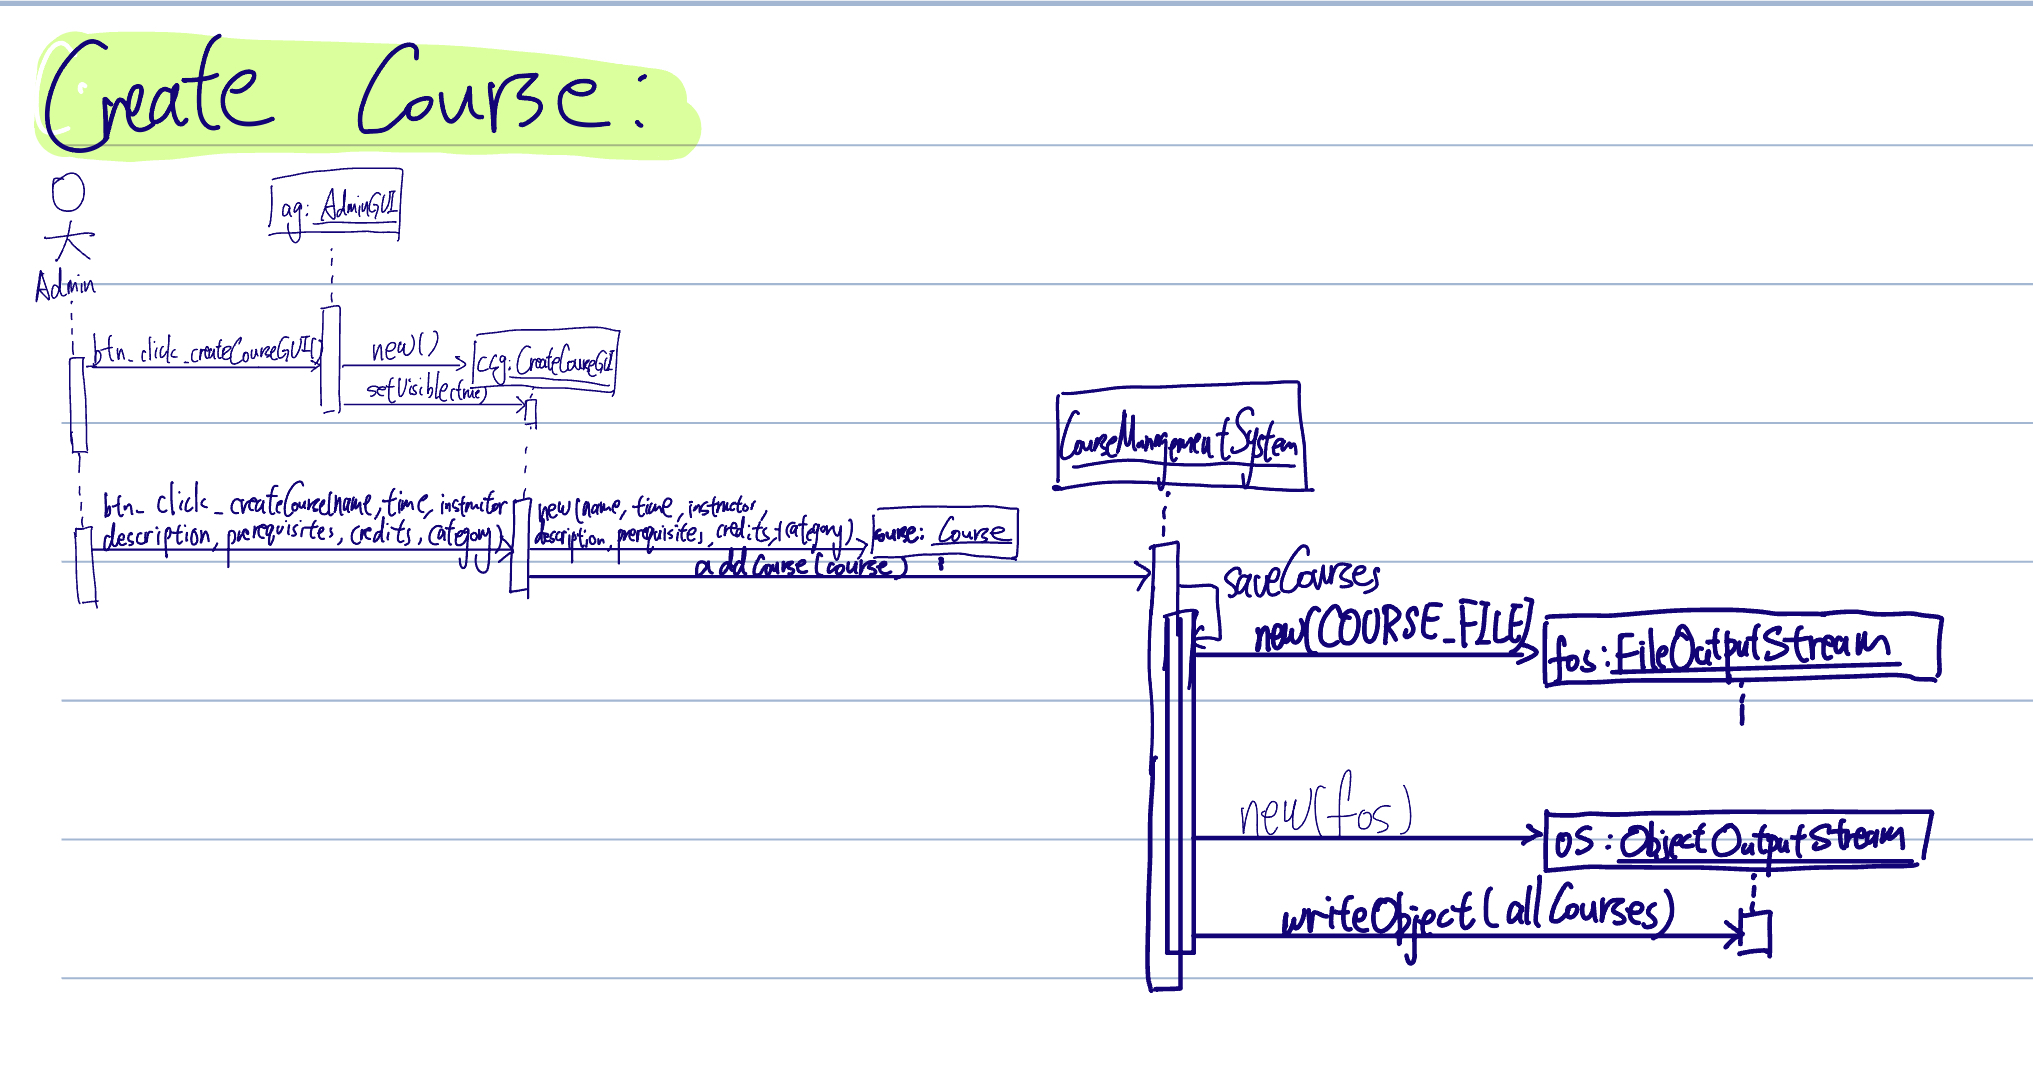 Create Course:
ag: AdminGUI
Admin
btn_click_createCourseGUI()
new()
ccg: CreateCourseGUI
setVisible(true)
CourseManagementSystem
btn_click_createCourse(name, time, instructor
description, prerequisites, credits, category)
new(name, time, instructor,
description, prerequisites, credits, category)
course: Course
addCourse(course)
saveCourses
new(COURSE_FILE)
fos: FileOutputStream
new(fos)
os: ObjectOutputStream
writeObject(allCourses)